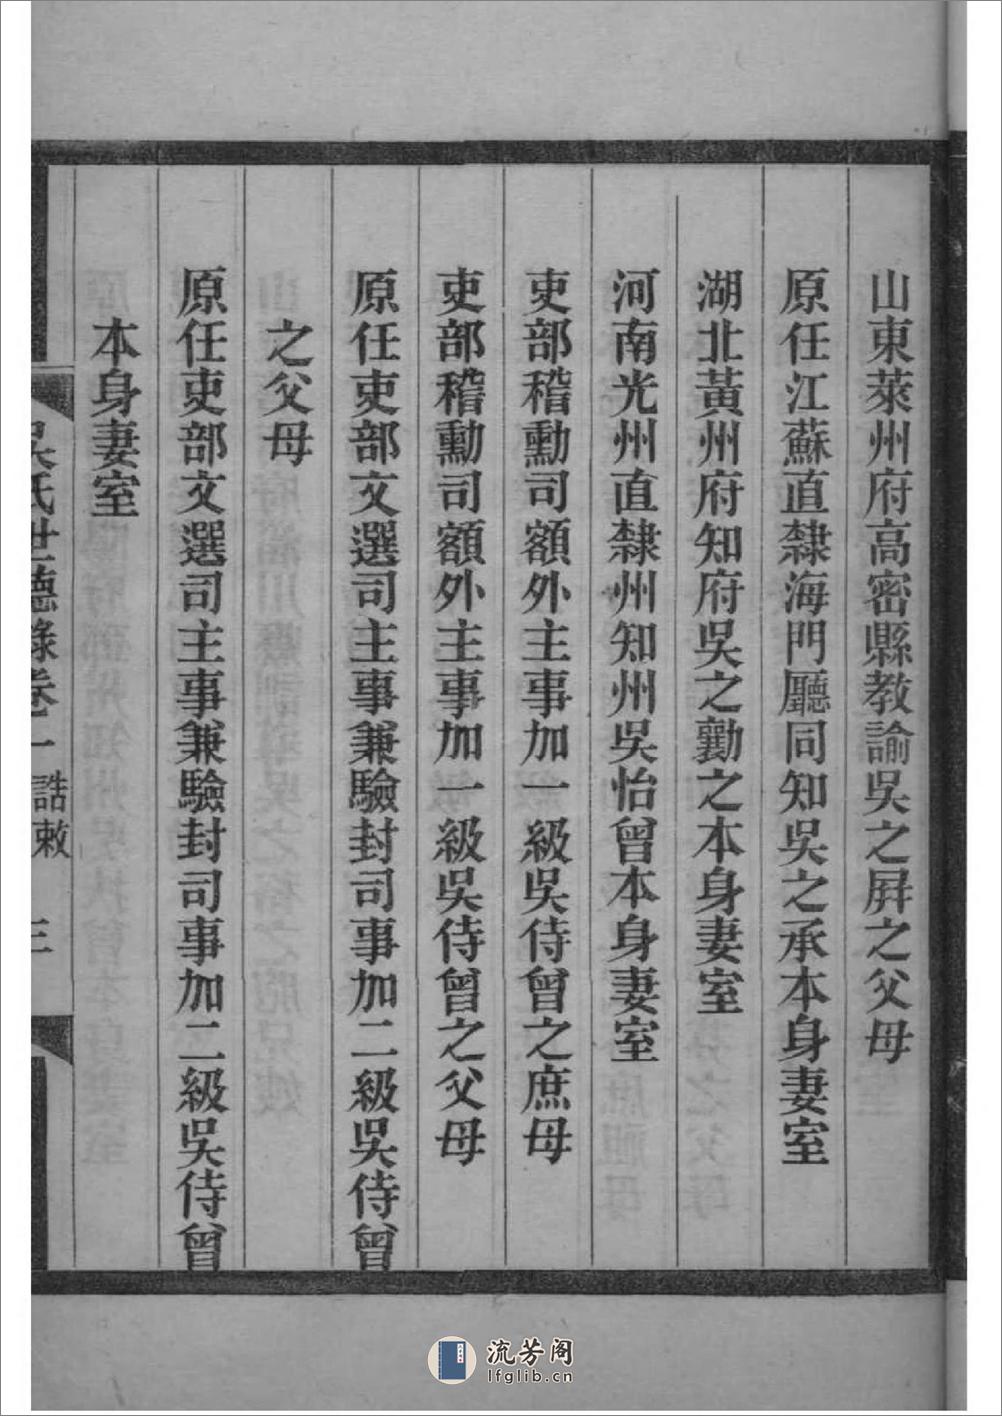 山東萊州府高密縣教諭吳之屛之父母
原任江蘇直隸海門廳同知吳之承本身妻室
湖北黃州府知府吳之勷之本身妻室
河南光州直隸州知州吳怡曾本身妻室
吏部稽勳司額外主事加一級吳侍曾之庶母
吏部稽勳司額外主事加一級吳侍曾之父母
原任吏部文選司主事兼驗封司事加二級吳侍曾
之父母
原任吏部文選司主事兼驗封司事加二級吳侍曾
本身妻室
吳氏世德錄卷一 誥敕 三
流芳阁
lfglib.cn